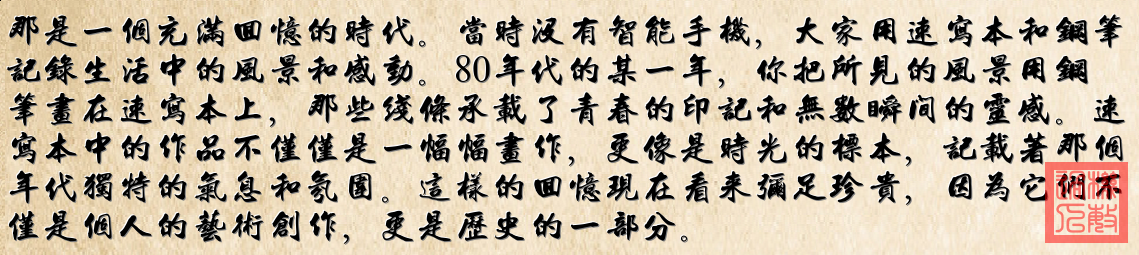 那是一個充滿回憶的時代。當時沒有智能手機，大家用速寫本和鋼筆
記錄生活中的風景和感動。80年代的某一年，你把所見的風景用鋼
筆畫在速寫本上，那些綫條承載了青春的印記和無數瞬间的靈感。速
寫本中的作品不僅僅是一幅幅畫作，更像是時光的標本，記載著那個
年代獨特的氣息和氛圍。這樣的回憶現在看来彌足珍貴，因為它們不
僅是個人的藝術創作，更是歷史的一部分。